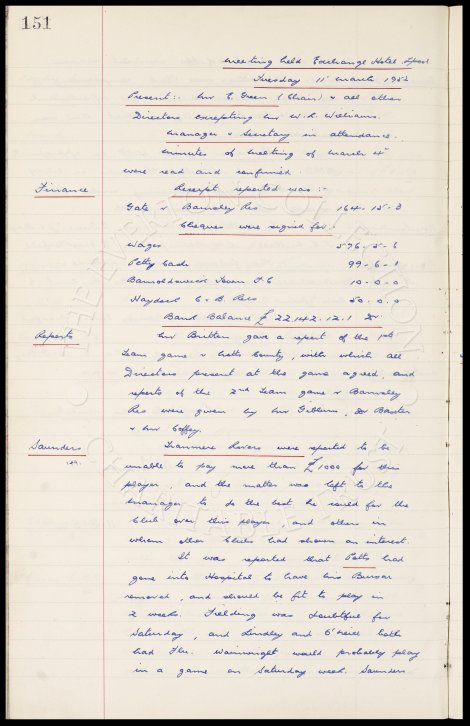 151
Meeting held Exchange Hotel L'pool
Tuesday 11th March 1952
Present:- Mr E. Green (Chair) & all other
Directors excepting Mr W. R. Williams.
Manager & Secretary in attendance.
Minutes of meeting of March 4th
were read and confirmed.
Finance
Receipt reported was :-
Gate v Barnsley Res 164-15-3
Cheques were signed for :
Wages 576-5-6
Petty Cash 99-6-1
Barnoldswick Town F.C 10-0-0
Haydock C & B. Recs 50-0-0
Bank Balance £22,142-12-1 Dr
Reports
Mr Britton gave a report of the 1st
team game v Notts County, with which all
Directors present at the game agreed, and
reports of the 2nd team game v Barnsley
Res were given by Mr Gibbins, Dr Baxter
& Mr Coffey.
Saunders
Tranmere Rovers were reported to be
unable to pay more than £1000 for this
player, and the matter was left to the
Manager to do the best he could for the
Club over this player, and others in
whom other Clubs had shown an interest.
It was reported that Potts had
gone into Hospital to have his Bursar
removed, and should be fit to play in
2 weeks. Fielding was doubtful for
Saturday, and Lindley and O'Neill both
had Flu. Wainwright would probably play
in a game on Saturday week. Saunders
THE EVERTON COLLECTION
CHARITABLE TRUST